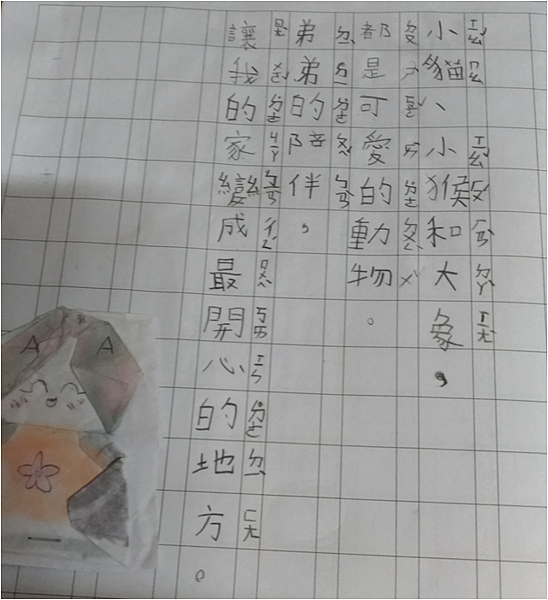 小貓、小猴和大象，
都是可愛的動物。
弟弟的陪伴，
讓我的家變成最開心的地方。
A A